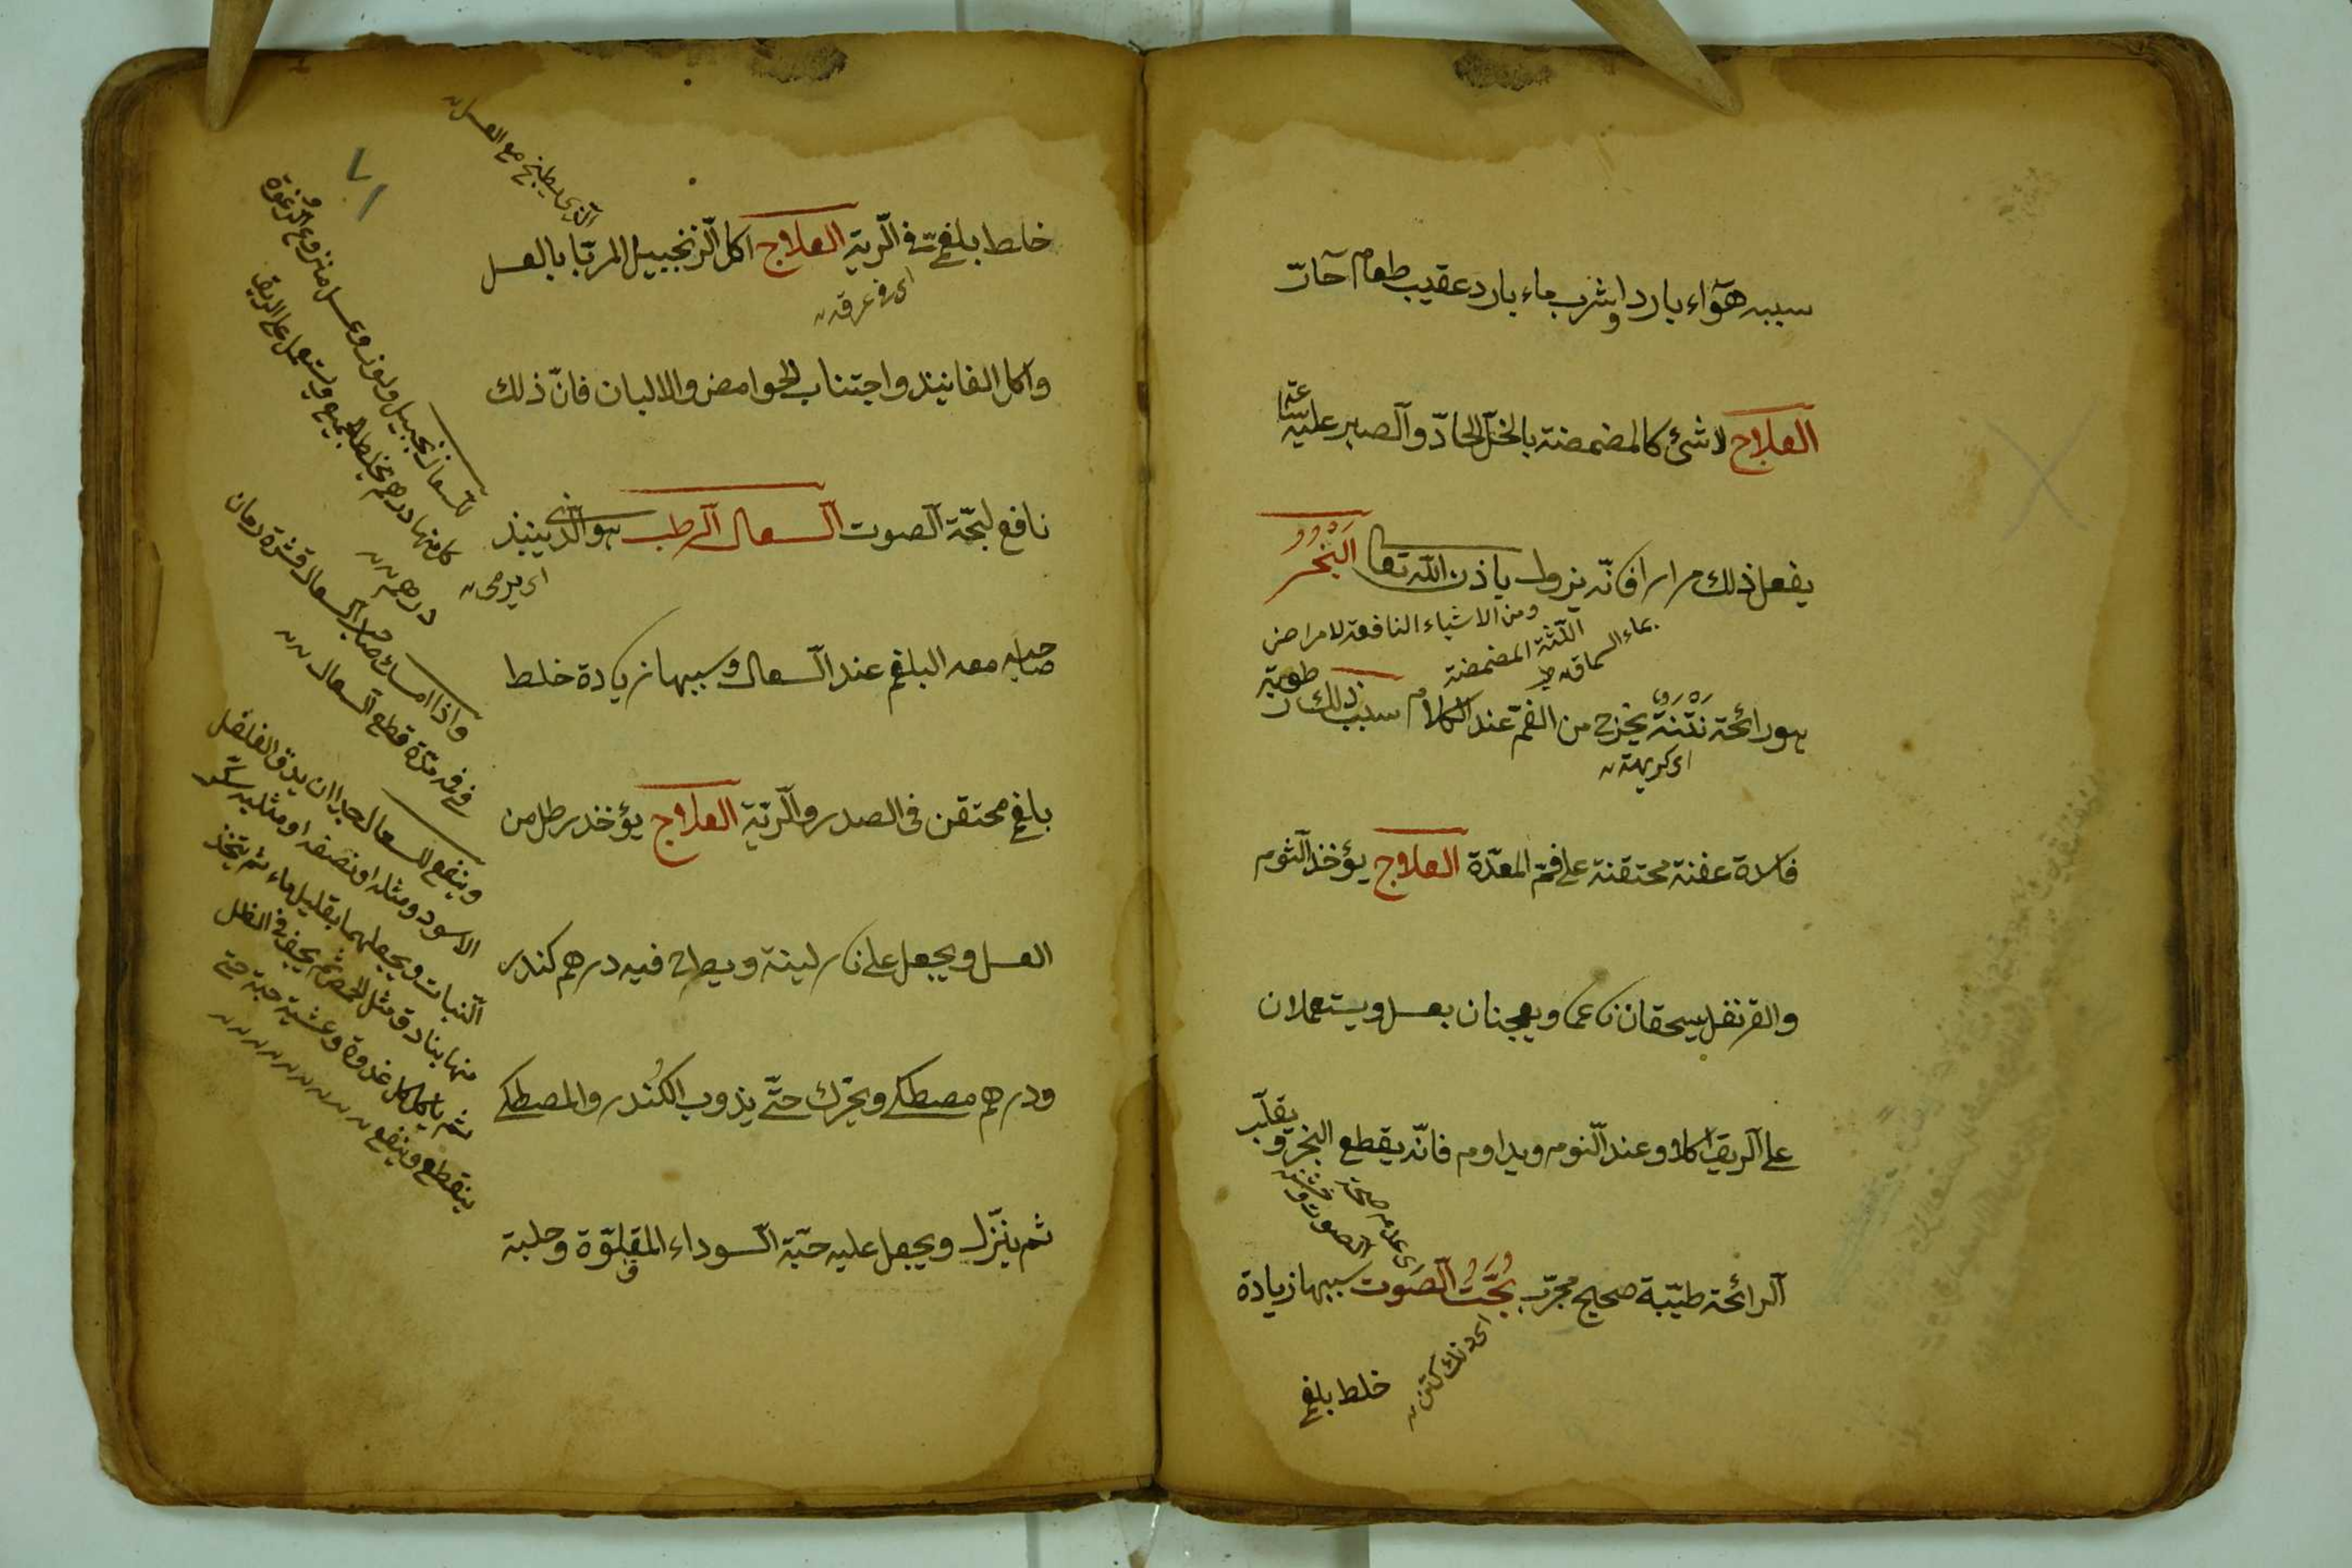 سببه هوآء بارد او شرب ماء بارد عقيب طعام حآرّ
العلاج لا شئ كالمضمضة بالخلّ الحادّ والصبر عليه ساعة
يفعل ذلك مرارا فانّه يزول باذن اللّه تعا البَخَرُ
ومن الاشياء النافعة لامراض
اللّثة المضمضة
بماء السماق
هو رائحة نَتْنَة يخرج من الفم عند الكلام سبب ذلك رطوبة
اى كريهة
فاسدة عفنة محتقنة على فم المعدة العلاج يؤخذ الثوم
والقرنفل يسحقان ناعما ويعجنان بعسل ويستعملان
على الريق اكلا وعند النوم ويداوم فانّه يقطع البخر ويقلّب
اى عدم صحّة
الصوت
الرائحة طيّبة صحيح مجرّب بُحَّتُ الصَّوت سببها زيادة
خلط بلغم
خلط بلغمىّ فى الرّية العلاج اكل الزنجبيل المربّا بالعسل
الّذى يطبخ مع العسل
اى فى عرقه
واكل الفانيذ واجتناب الحوامض والالبان فانّ ذلك
نافع لبحّة الصوت السعال الرطب هو الّذى ينبذ
اى يرمى
صاحبه معه البلغم عند السعال وسببها زيادة خلط
بلغم محتقن فى الصدر والرّية العلاج يؤخذ رطل من
العسل ويجعل على نار لينة ويطرح فيه درهم كندر
ودرهم مصطكى ويحرّك حتّى يذوب الكُندر والمصطكى
ثم ينزّل ويجعل عليه حبّة السوداء المقلوّة وحلبة
٧١
للسعال زنجبيل ولوز وعسل منزوع الرغوة
كل منها درهم يخلط الجميع ويستعمل على الريق
درهم
واذا امسك صاحب السعال قشرة رمان
فى فمه مدّة قطع السعال
وينفع للسعال جدا ان يدق الفلفل
الاسود ومثله او نصفه او مثليه سكّر
النبات ويجعلهما بقليل ماء ثم يتّخذ
منها بنادق مثل الحمص ثم يجفّ فى الظل
ثم ياكل كل غدوة وعشية حبّة حتّى
ينقطع وينفع